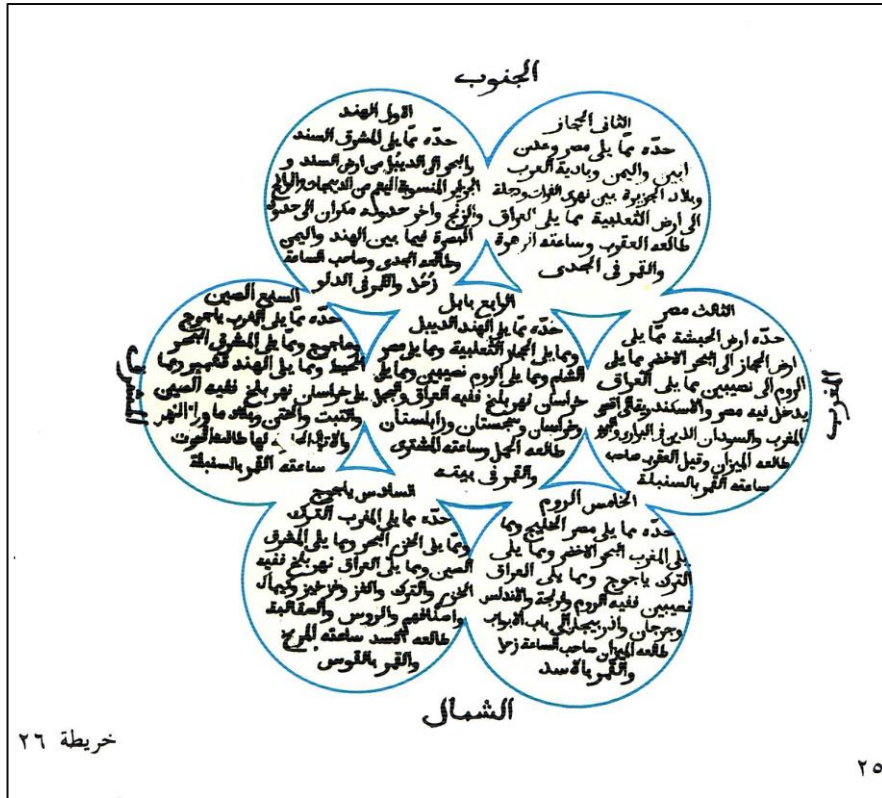 الجنوب
الاول الهند
حدّه ممّا يلي المشرق السند
والبحر الى الديبل من ارض السند و
الجزاير المنسوبة اليهم من الديبجات والزابج
والزنج واخر حدوده مكران الى حدود
البصرة فيما بين الهند واليمن
وطالعه الجدى وصاحب الساعة
زُحَل والقمر فى الدلو
الثانى الحجاز
حدّه ممّا يلي مصر وعدن
ابين واليمن وبادية العرب
وبلاد الجزيرة بين نهرى الفرات ودجلة
الى ارض الثعلبية مما يلى العراق
طالعه العقرب وساعته الزهرة
والقمر فى الجدى
السابع الصين
حدّه ممّا يلي المغرب ياجوج
وماجوج وممّا يلى المشرق البحر
المحيط ومما يلى الهند قشمير ومما
يلى خراسان نهر بلخ ففيه الصين
والتبت والختن وبلاد ما وراء النهر
لها طالعه الحوت
ساعته القمر بالسنبلة
المشرق
الرابع بابل
حدّه ممّا يلى الهند الديبل
ومما يلى الحجاز الثعلبية ومما يلى مصر
الشام ومما يلى الروم نصيبين ومما يلى
خراسان نهر بلخ ففيه العراق والجبل
وخراسان وسجستان وزابلستان
طالعه الحمل وساعته المشترى
والقمر فى بيته
الثالث مصر
حدّه ارض الحبشة ممّا يلى
ارض الحجاز الى البحر الاخضر مما يلى
الروم الى نصيبين مما يلى العراق
يدخل فيه مصر والاسكندرية اقصى
المغرب والسودان الذين فى البرارى
طالعه الميزان وقيل العقرب صاحب
ساعته القمر بالسنبلة
المغرب
السادس ياجوج
حدّه ممّا يلى المغرب الترك
وممّا يلى الخزر البحر ومما يلى المشرق
الصين ومما يلى العراق نهر بلخ ففيه
الخزر والترك والغز وخرخيز وكيماك
واصنافهم والروس والصقالبة
طالعه الاسد ساعته المريخ
والقمر بالقوس
الخامس الروم
حدّه مما يلى مصر الخليج ومما
يلى المغرب البحر الاخضر ومما يلى
الترك ياجوج ومما يلى العراق
نصيبين ففيه الروم وفرنجة والاندلس
وجرجان واذربيجان الى باب الابواب
طالعه الميزان صاحب الساعة زحل
والقمر بالاسد
الشمال
خريطة ٢٦
٢٥